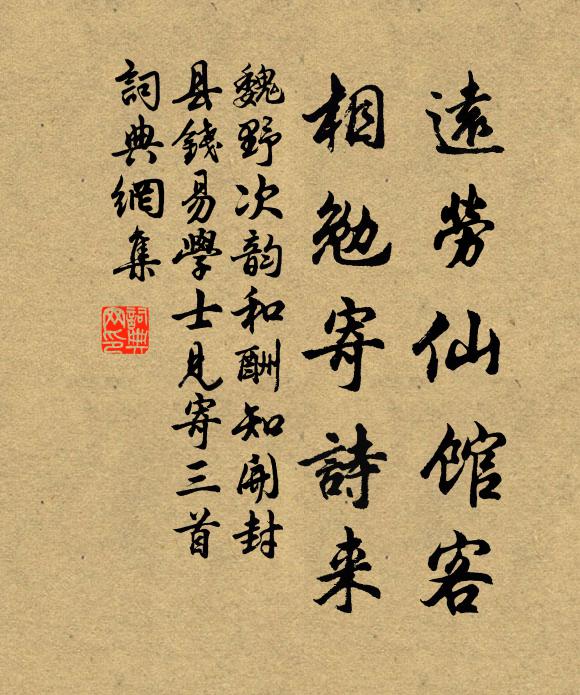 遠勞仙館客
相勉寄詩来
魏野次韵和酬知開封
县錢易學士見寄三首
詞典網集
詞典网印